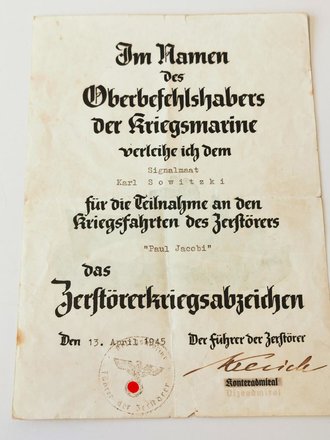 Im Namen
des
Oberbefehlshabers
der Kriegsmarine
verleihe ich dem
Signalmaat
Karl Sowitzki
für die Teilnahme an den
Kriegsfahrten des Zerstörers
"Paul Jacobi"
das
Zerstörerkriegsabzeichen
Den 13. April 1945 Der Führer der Zerstörer
Konteradmiral
Vizeadmiral
Führer der Zerstörer